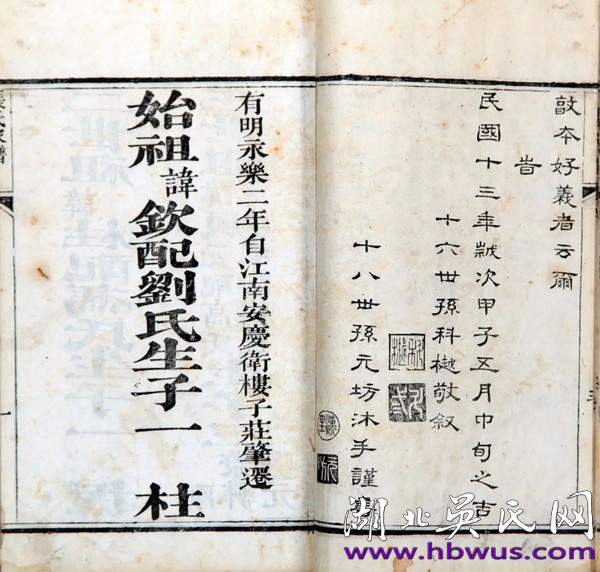 敦本好義者云爾
旹
民國十三年歲次甲子五月中旬之吉
十六世孫科樾敬叙
十八世孫元坊沐手謹
有明永樂二年自江南安慶衛樓子莊肇遷
始祖諱欽配劉氏生子一 柱
湖北吴氏网
www.hbwus.com